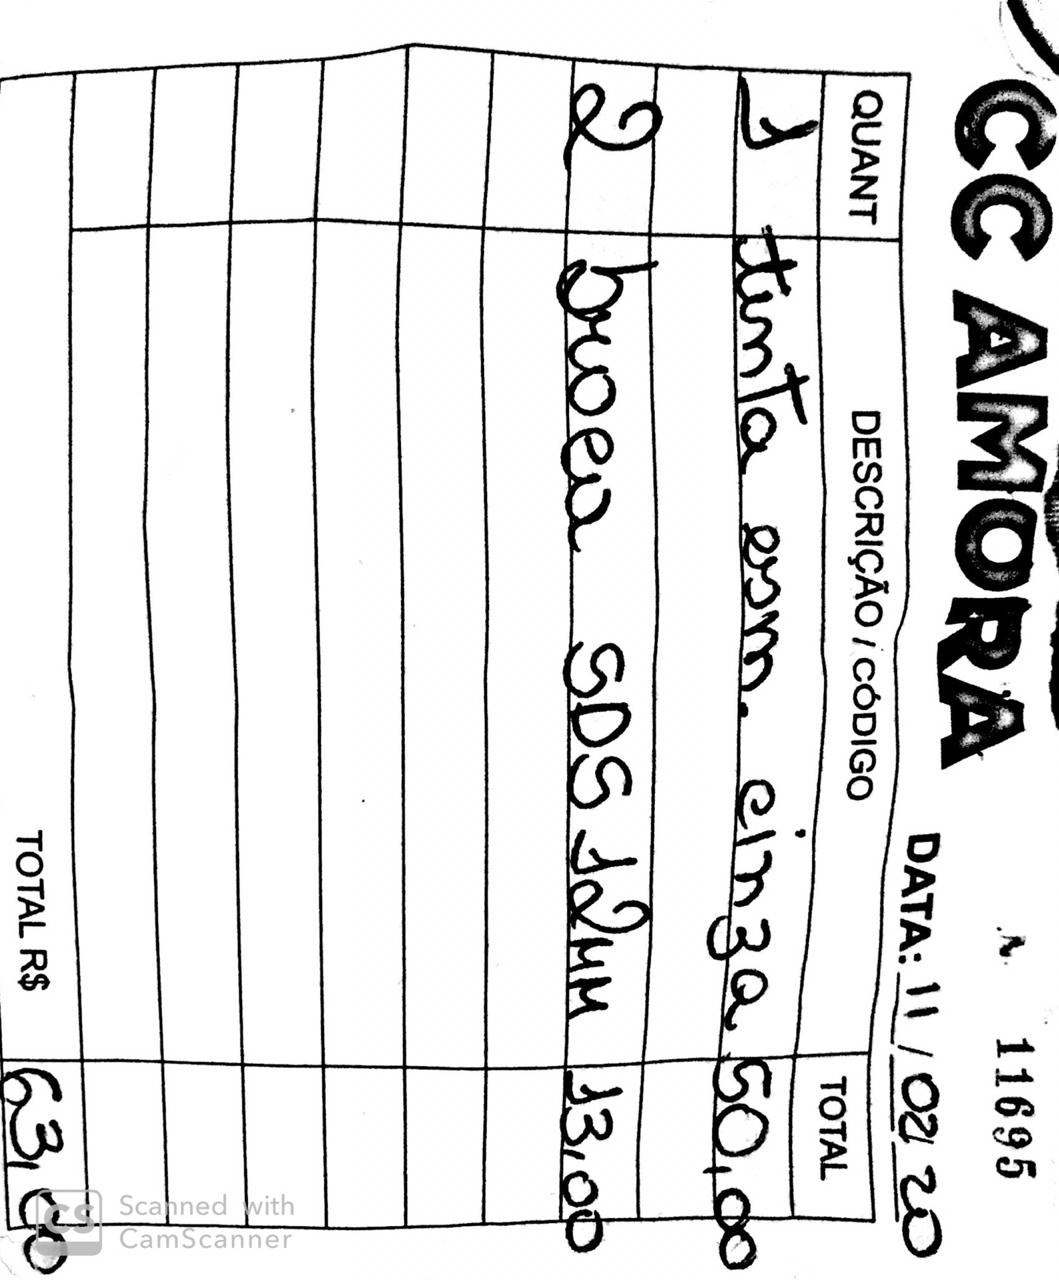 CC AMORA
N. 11695
DATA: 11 / 02 / 20
QUANT DESCRIÇÃO / CÓDIGO TOTAL
1 tinta esm. cinza 50,00
2 broca SDS 12MM 13,00
TOTAL R$ 63,00
CS Scanned with
CamScanner